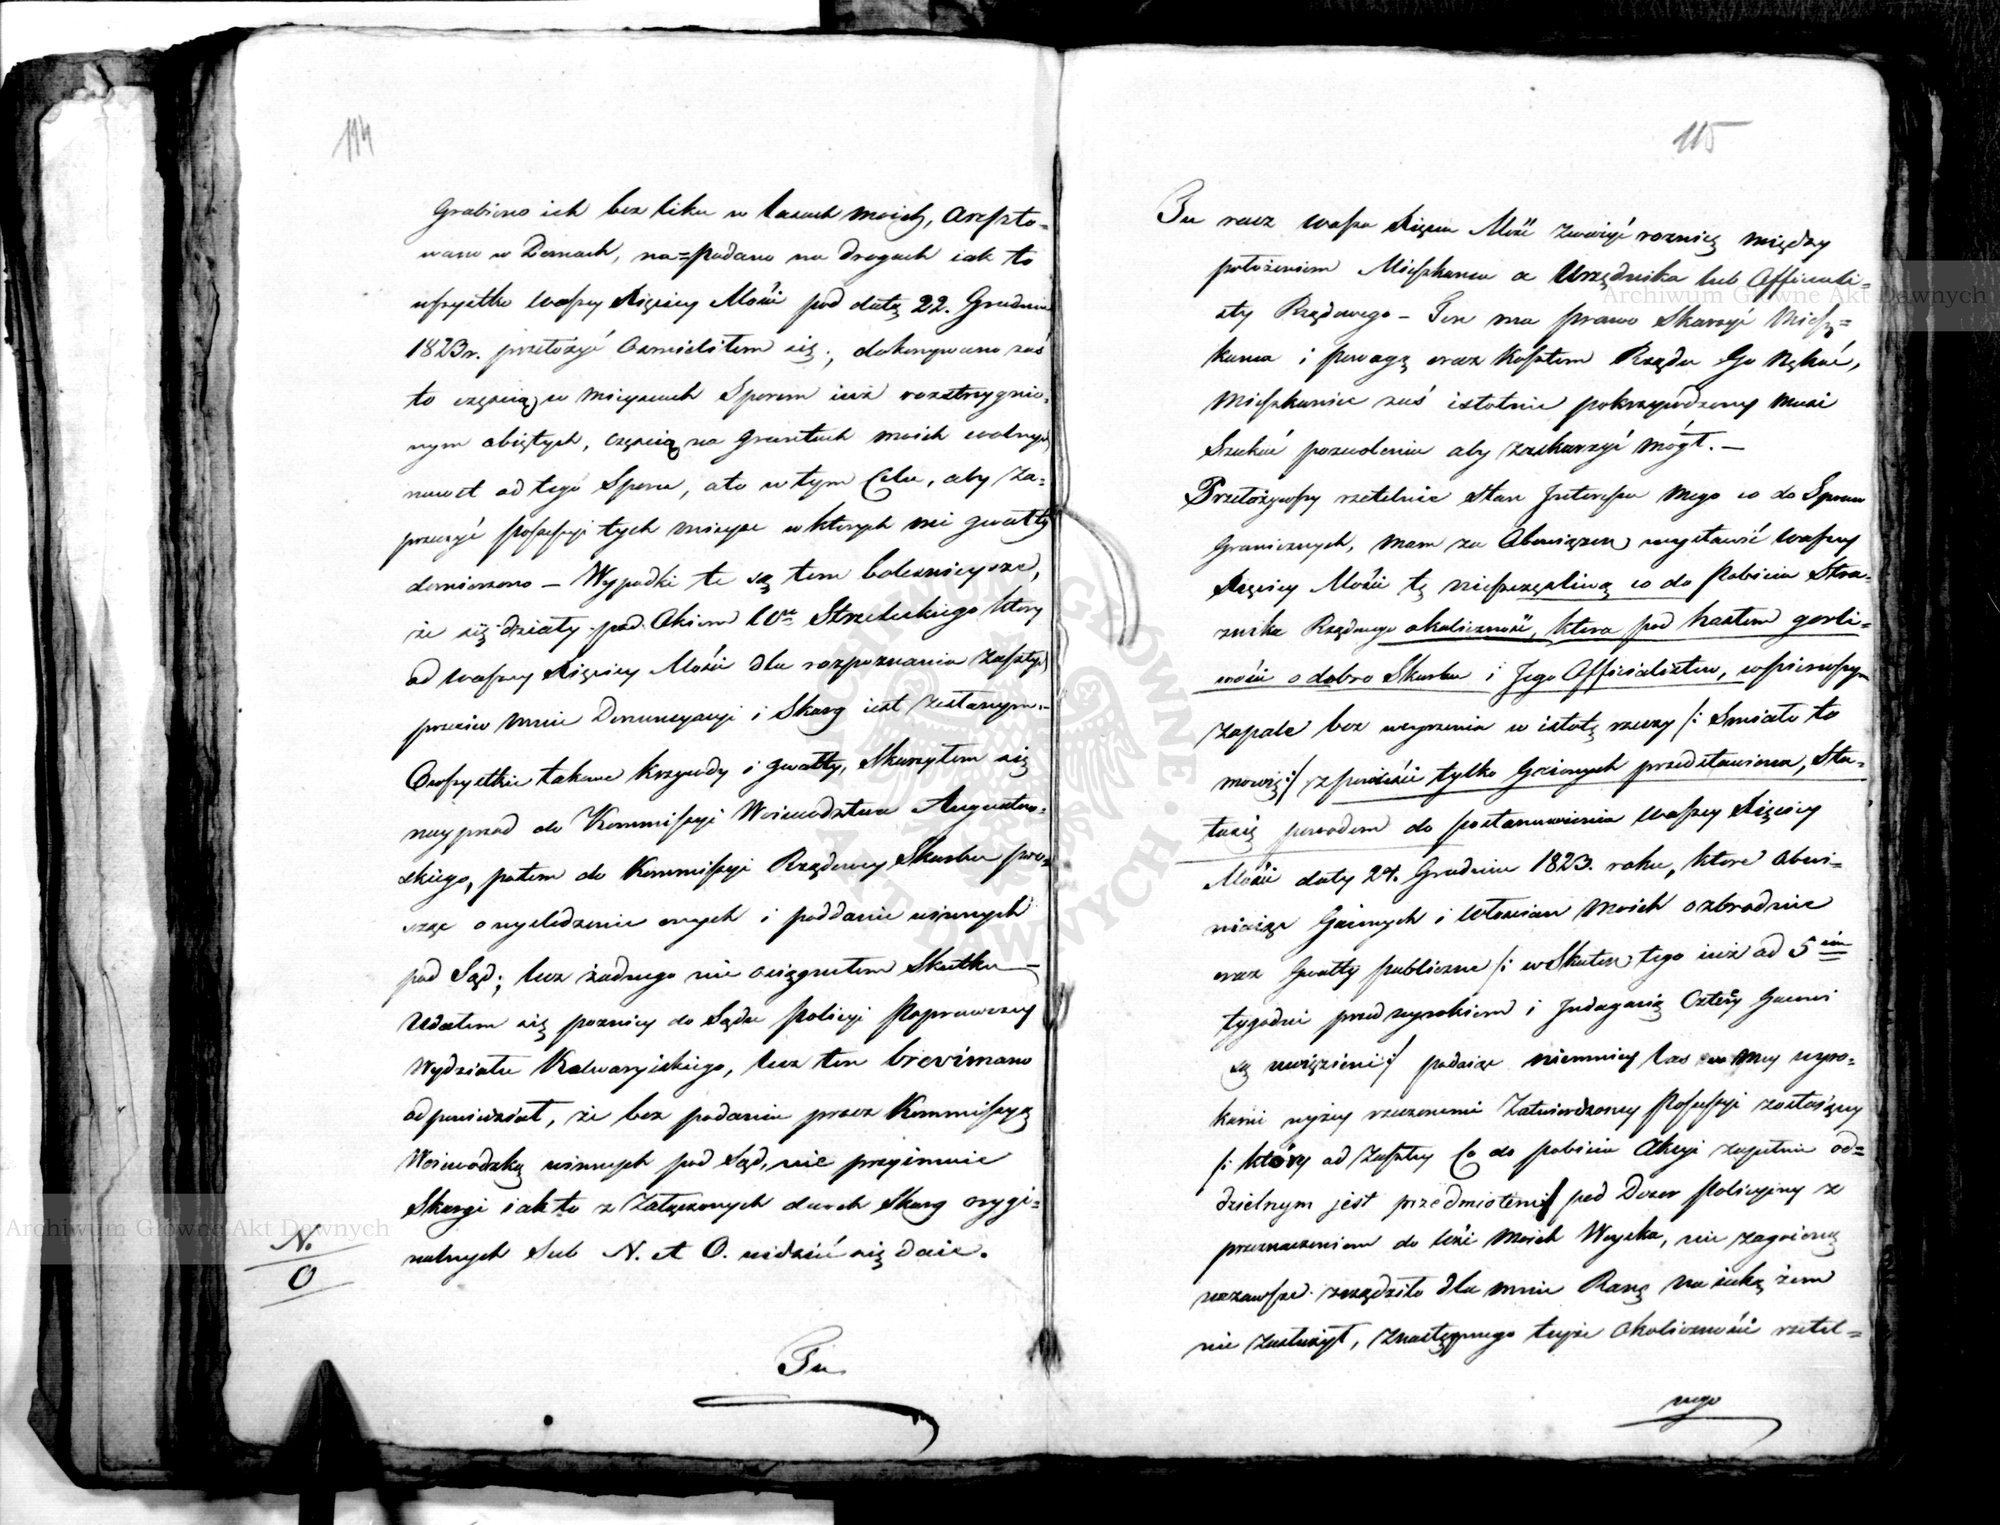 114
Grabiono ich bez liku w lasach moich, areszto=
wano w Domach, na=padano na drogach iak to
wszystko Waszey Xiążęcey Mości pod datą 22. Grudnia
1823 r. przełożyć ośmieliłem się; dokonywano zaś
to częścią w mieyscach Sporem iuż rozstrzygnio=
nym obiętych, częścią na gruntach moich wolnych
nawet od tego Sporu, a to w tym Celu, aby za=
przeczyć possessyi tych mieysc w których mi gwałty
domierzono – Wypadki te są tem boleśnieysze,
że się działy pod Okiem Wgo Strzeleckiego który
od Waszey Xiążęcey Mości dla rozpoznania zaszłych
przeciw mnie Denuncyacyi i Skarg iest zesłanym.–
O wszystkie takowe krzywdy i gwałty, skarżyłem się
nayprzod do Kommissyi Woiewodztwa Augustow=
skiego, potem do Kommissyi Rządowey Skarbu pro=
sząc o wyśledzenie onych i poddanie winnych
pod Sąd; lecz żadnego nie osiągnąłem Skutku –
Udałem się pozniey do Sądu Policyi Poprawczey
Wydziału Kalwaryiskiego, lecz ten brevimano
odpowiedział, że bez podania przez Kommissyą
Woiewodzką winnych pod Sąd, nie przyimuie
Skargi iak to z Załączonych dwóch Skarg orygi=
nalnych Sub N. et O. widzieć się daie.
N.
O
Tu
115
Tu racz Wasza Xiążęca Mość zważyć roznicę między
położeniem Mieszkańca a Urzędnika lub Officiali=
sty Rządowego – Ten ma prawo Skarżyć Miesz=
kańca i powagą oraz kosztem Rządu Go nękać,
Mieszkaniec zaś istotnie pokrzywdzony musi
Szukać pozwolenia aby zaskarżyć mógł. –
Przełożywszy rzetelnie Stan Interessu mego co do Sporow
Granicznych, mam za Obowiązek wystawić Waszey
Xiążęcey Mości tę nieszczęśliwą co do Pobicia Stra=
znika Rządowego okoliczność, która pod hasłem gorli=
wości o dobro Skarbu i Jego Officialistow, w pierwszym
zapale bez weyrzenia w istotę rzeczy /: Smiało to
mowię :/ z powieści tylko Gaiowych przedstawiona, Sta=
ła się powodem do postanowienia Waszey Xiążęcey
Mości daty 24. Grudnia 1823. roku, które obwi=
niaiąc Gaiowych i Włościan moich o zbrodnie
oraz Gwałty publiczne /: w Skutku tego iuż od 5ciu
tygodni przed wyrokiem i Indagacią Cztery Gaiowi
są uwięzieni :/ podaiąc niemniey las w mey wyro=
kami wyżey rzeczonemi Zatwierdzoney Possessyi zostaiący
/: który od Zaszłey Co do pobicia Akcyi zupełnie od=
dzielnym jest przedmiotem :/ pod Dozor Policyiny z
przeznaczeniem do tego Woyska, nie zagoioną
na zawsze zrządziło dla mnie Ranę na iaką żem
nie zasłużył, z następnego teyże okoliczności rzetel=
nego